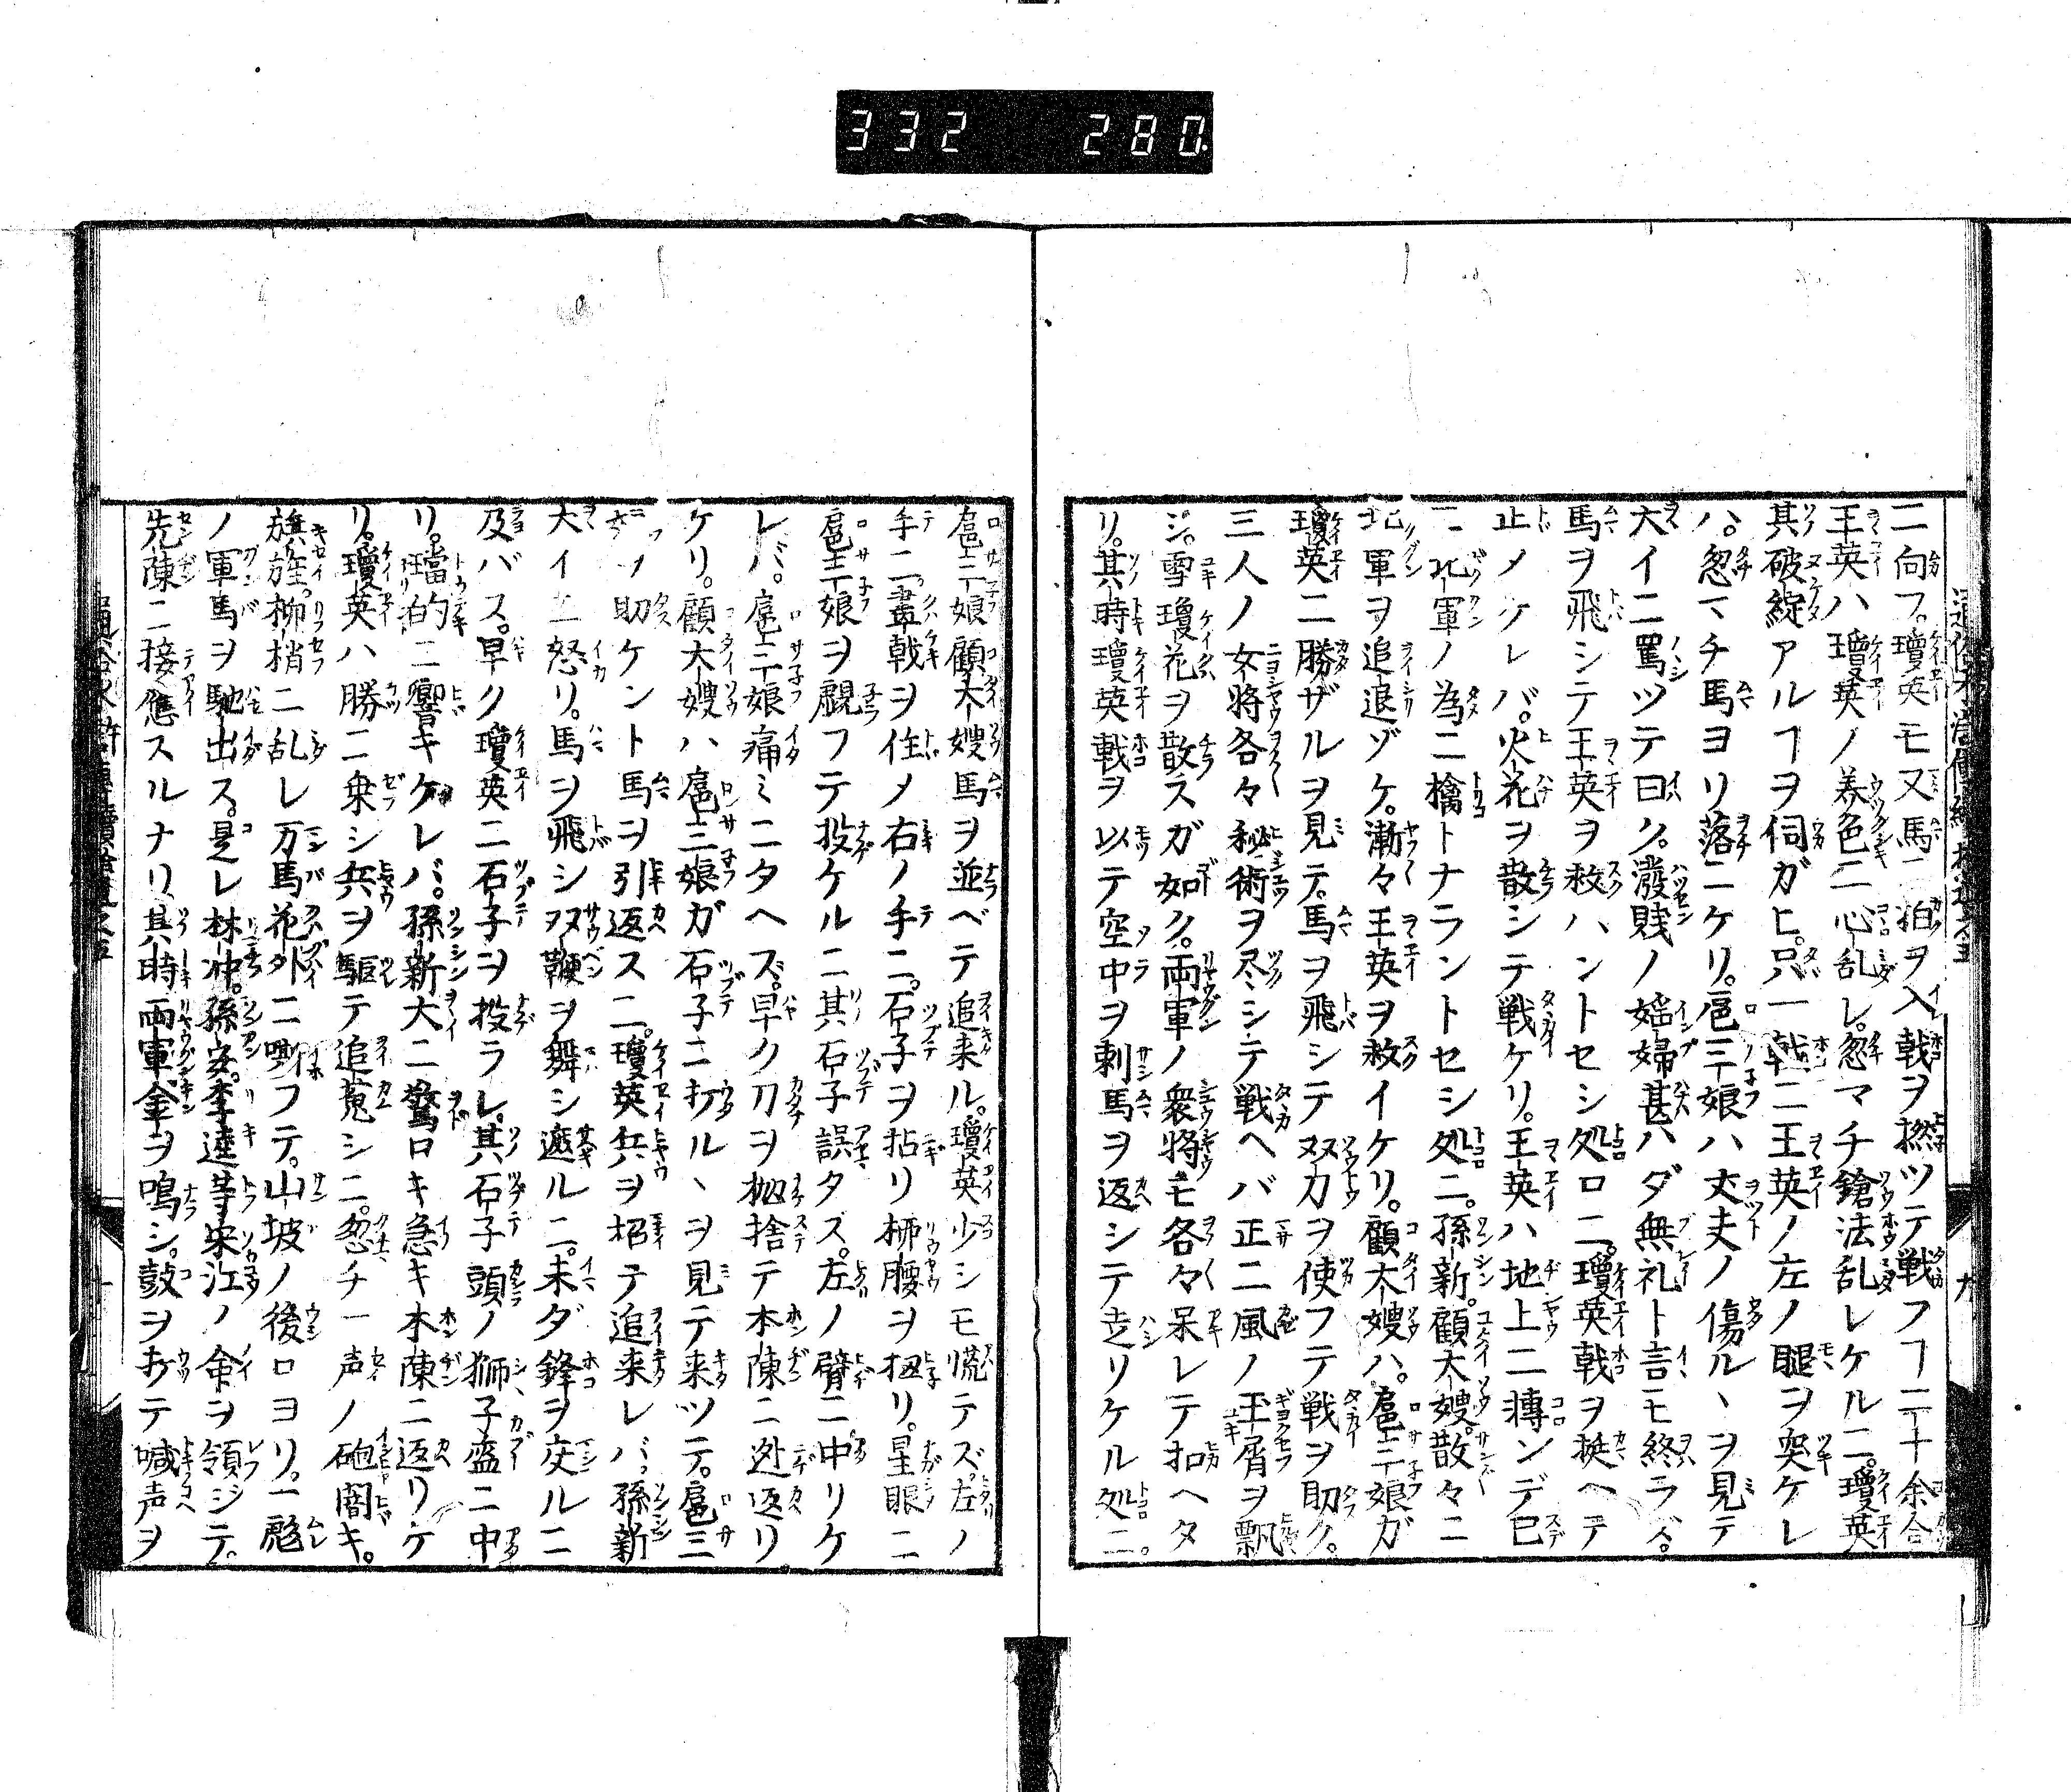 332 280
ニ向フ。瓊英モ又馬ニ拍ヲ入戟ヲ撚ツテ戦フヿ二十余合
王英ハ瓊英ノ養色ニ心乱レ。忽マチ鎗法乱レケルニ。瓊英
其破綻アルヿヲ伺ガヒ。只一戟ニ王英ノ左ノ腿ヲ突ケレ
ハ。忽マチ馬ヨリ落ニケリ。扈三娘ハ丈夫ノ傷ルヽヲ見テ
大イニ罵ツテ曰ク。潑賎ノ婬婦甚ハダ無礼ト言モ終ラズ。
馬ヲ飛シテ王英ヲ救ハントセシ処ロニ。瓊英戟ヲ挺ヘテ
止メケレバ。火花ヲ散シテ戦ケリ。王英ハ地上ニ轉ンデ已
ニ北軍ノ為ニ擒トナラントセシ処ニ。孫新。顧大嫂。散々ニ
北軍ヲ追退ゾケ。漸々王英ヲ救イケリ。顧大嫂ハ。扈三娘ガ
瓊英ニ勝ザルヲ見テ。馬ヲ飛シテ双刀ヲ使フテ戦ヲ助ク。
三人ノ女将各々秘術ヲ尽シテ戦ヘバ正ニ風ノ玉屑ヲ飄
ジ。雪瓊花ヲ散スガ如ク。両軍ノ衆将モ各々呆レテ扣ヘタ
リ。其時瓊英戟ヲ以テ空中ヲ刺馬ヲ返シテ走リケル処ニ。
扈三娘顧大嫂馬ヲ並ベテ追来ル。瓊英少シモ慌テズ。左ノ
手ニ。畫戟ヲ住メ右ノ手ニ。石子ヲ拈リ柳腰ヲ扭リ。星眼ニ
扈三娘ヲ覷フテ投ケルニ其石子誤タズ。左ノ臂ニ中リケ
レバ。扈三娘痛ミニタヘズ。早ク刀ヲ扱捨テ本陳ニ迯返リ
ケリ。顧大嫂ハ扈三娘ガ石子ニ打ルヽヲ見テ来ツテ。扈三
ヲ助ケント馬ヲ引返スニ。瓊英兵ヲ招テ追来レバ。孫新
大イニ怒リ。馬ヲ飛シ双鞭ヲ舞シ遮ルニ。未ダ鋒ヲ交ルニ
及バス。早ク瓊英ニ石子ヲ投ラレ。其石子頭ノ獅子盔ニ中
リ。璫的ニ響キケレバ。孫新大ニ驚ロキ急キ本陳ニ返リケ
リ。瓊英ハ勝ニ乗シ兵ヲ駆テ追蒐シニ。忽チ一声ノ砲闇キ。
旗旌。柳梢ニ乱レ万馬花外ニ嘶フテ。山坡ノ後ロヨリ。一彪
ノ軍馬ヲ馳出ス。是レ林冲。孫安。李逵等宋江ノ命ヲ領ジテ。
先陳ニ接應スルナリ、其時両軍金ヲ鳴シ。鼓ヲ打テ喊声ヲ